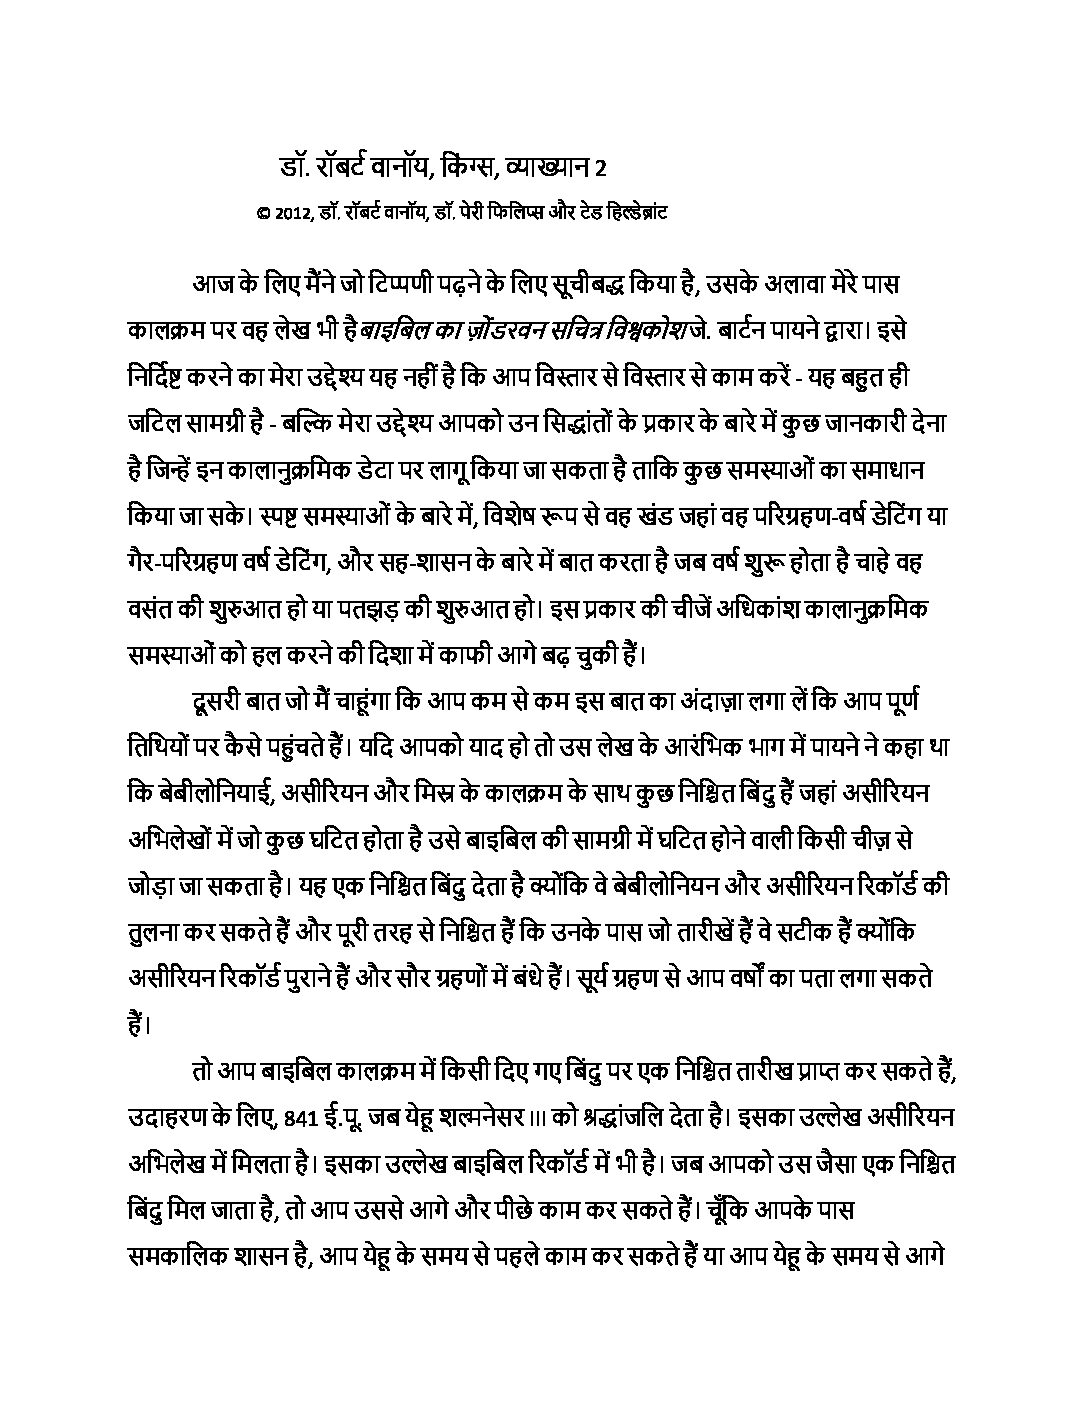 डॉ. रॉबर्ट वानॉय, किंग्स, व्याख्यान 2
© 2012, डॉ. रॉबर्ट वानॉय, डॉ. पेरी फिलिप्स और टेड हिल्डेब्रांट
आज के लिए मैंने जो टिप्पणी पढ़ने के लिए सूचीबद्ध किया है, उसके अलावा मेरे पास
कालक्रम पर वह लेख भी है बाइबिल का ज़ोंडरवन सचित्र विश्वकोश जे. बार्टन पायने द्वारा। इसे
निर्दिष्ट करने का मेरा उद्देश्य यह नहीं है कि आप विस्तार से विस्तार से काम करें - यह बहुत ही
जटिल सामग्री है - बल्कि मेरा उद्देश्य आपको उन सिद्धांतों के प्रकार के बारे में कुछ जानकारी देना
है जिन्हें इन कालानुक्रमिक डेटा पर लागू किया जा सकता है ताकि कुछ समस्याओं का समाधान
किया जा सके। स्पष्ट समस्याओं के बारे में, विशेष रूप से वह खंड जहां वह परिग्रहण-वर्ष डेटिंग या
गैर-परिग्रहण वर्ष डेटिंग, और सह-शासन के बारे में बात करता है जब वर्ष शुरू होता है चाहे वह
वसंत की शुरुआत हो या पतझड़ की शुरुआत हो। इस प्रकार की चीजें अधिकांश कालानुक्रमिक
समस्याओं को हल करने की दिशा में काफी आगे बढ़ चुकी हैं।
दूसरी बात जो मैं चाहूंगा कि आप कम से कम इस बात का अंदाज़ा लगा लें कि आप पूर्ण
तिथियों पर कैसे पहुंचते हैं। यदि आपको याद हो तो उस लेख के आरंभिक भाग में पायने ने कहा था
कि बेबीलोनियाई, असीरियन और मिस्र के कालक्रम के साथ कुछ निश्चित बिंदु हैं जहां असीरियन
अभिलेखों में जो कुछ घटित होता है उसे बाइबिल की सामग्री में घटित होने वाली किसी चीज़ से
जोड़ा जा सकता है। यह एक निश्चित बिंदु देता है क्योंकि वे बेबीलोनियन और असीरियन रिकॉर्ड की
तुलना कर सकते हैं और पूरी तरह से निश्चित हैं कि उनके पास जो तारीखें हैं वे सटीक हैं क्योंकि
असीरियन रिकॉर्ड पुराने हैं और सौर ग्रहणों में बंधे हैं। सूर्य ग्रहण से आप वर्षों का पता लगा सकते
हैं।
तो आप बाइबिल कालक्रम में किसी दिए गए बिंदु पर एक निश्चित तारीख प्राप्त कर सकते हैं,
उदाहरण के लिए, 841 ई.पू. जब येहू शल्मनेसर III को श्रद्धांजलि देता है। इसका उल्लेख असीरियन
अभिलेख में मिलता है। इसका उल्लेख बाइबिल रिकॉर्ड में भी है। जब आपको उस जैसा एक निश्चित
बिंदु मिल जाता है, तो आप उससे आगे और पीछे काम कर सकते हैं। चूँकि आपके पास
समकालिक शासन है, आप येहू के समय से पहले काम कर सकते हैं या आप येहू के समय से आगे